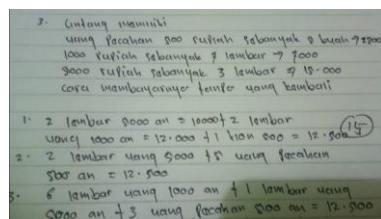 3. Lintang memiliki
uang pecahan 500 rupiah sebanyak
1000 rupiah sebanyak 7 lembar → 7000
5000 rupiah sebanyak 3 lembar
cara membayarnya tanpa uang kembali
1. 2 lembar 5000 an = 10000 + 2 lembar
uang 1000 an = 12.000 + 1 500 = 12.500
2. 2 lembar uang 5000 + 5 uang pecahan
500 an = 12.500
3. 6 lembar uang 1000 an + 1 lembar uang
5000 an + 3 uang pecahan 500 an = 12.500